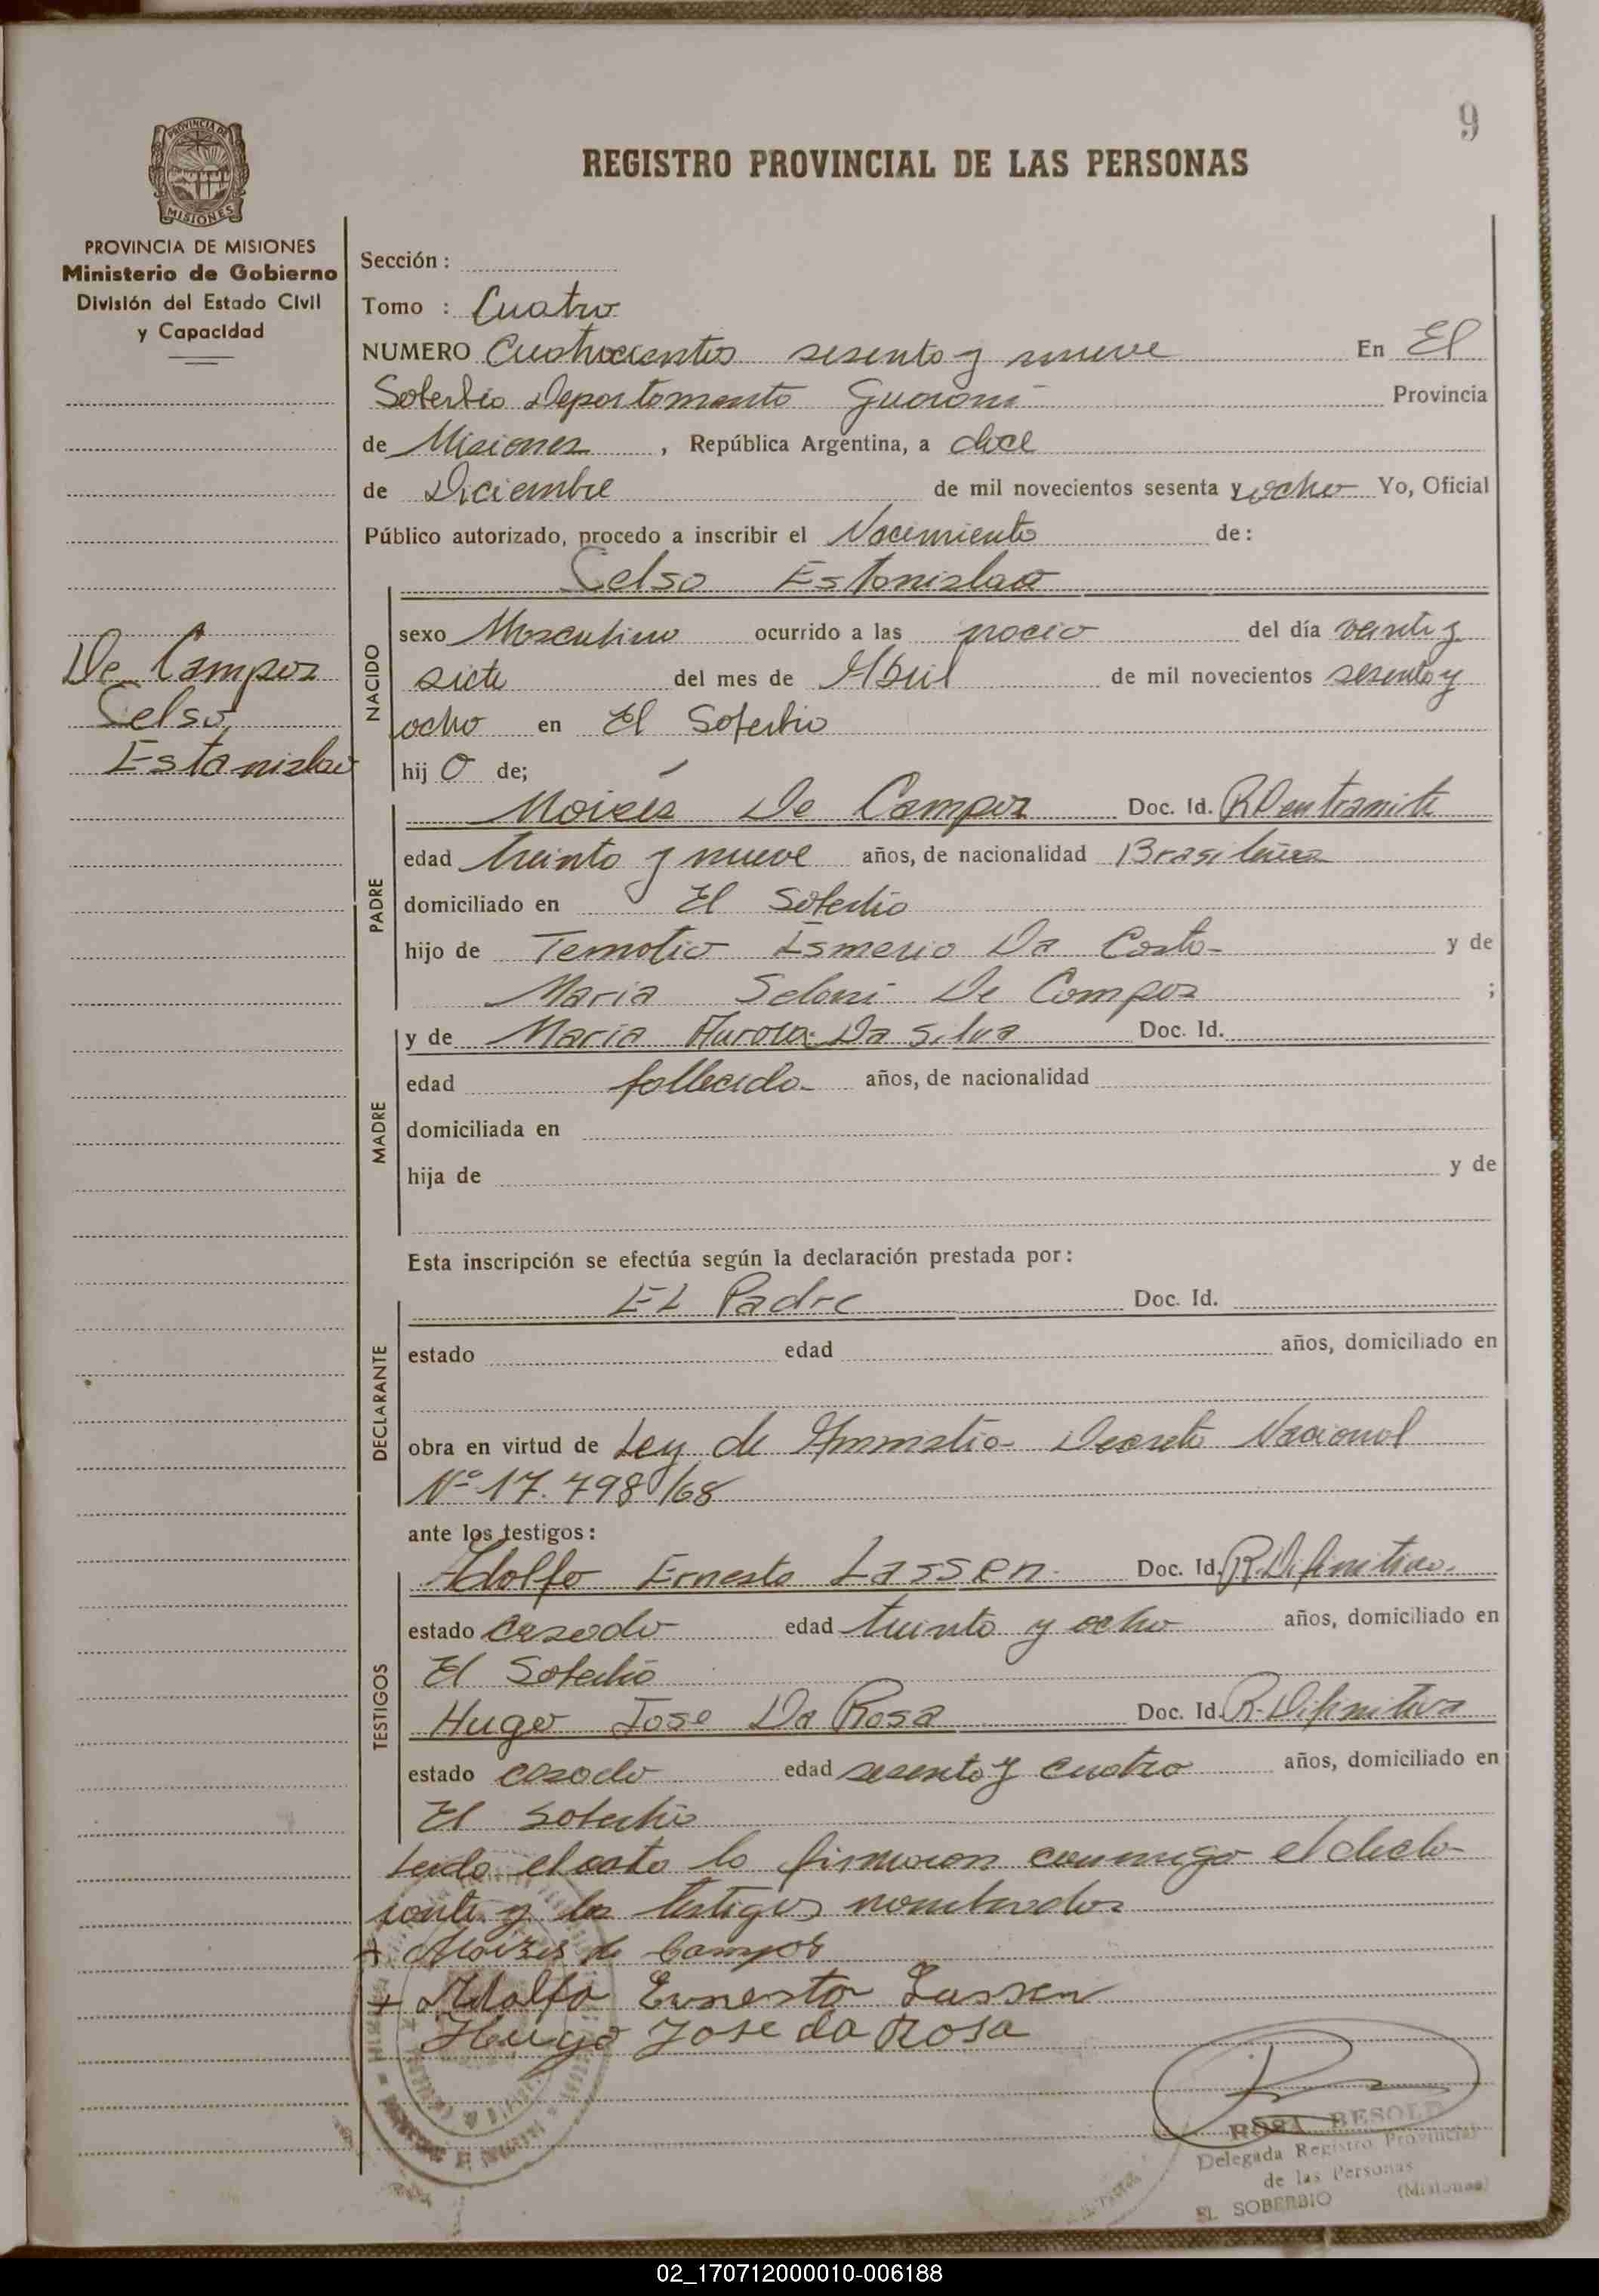 9
REGISTRO PROVINCIAL DE LAS PERSONAS
PROVINCIA DE MISIONES
PROVINCIA DE MISIONES
Ministerio de Gobierno
División del Estado Civil
y Capacidad
De Campos
Celso
Estanislao
Sección :
Tomo : Cuatro
NUMERO Cuatrocientos sesenta y nueve En El
Soberbio Departamento Guaraní Provincia
de Misiones , República Argentina, a doce
de Diciembre de mil novecientos sesenta y ocho Yo, Oficial
Público autorizado, procedo a inscribir el Nacimiento de:
Celso Estanislao
NACIDO
sexo Masculino ocurrido a las del día veinte y
siete del mes de Abril de mil novecientos sesenta y
ocho en El Soberbio
hij o de;
PADRE
Moisés De Campos Doc. Id. R.D en tramite
edad treinta y nueve años, de nacionalidad Brasileña
domiciliado en El Soberbio
hijo de Temotio Ismerio Da Costa y de
Maria De Campos ;
MADRE
y de Maria Aurora Da Silva Doc. Id.
edad fallecida años, de nacionalidad
domiciliada en
hija de y de
Esta inscripción se efectúa según la declaración prestada por:
DECLARANTE
EL Padre Doc. Id.
estado edad años, domiciliado en
obra en virtud de Ley de Amnistia Decreto Nacional
Nº 17.798/68
ante los testigos:
TESTIGOS
Adolfo Ernesto Lassen Doc. Id. R. Difinitiva
estado casado edad treinta y ocho años, domiciliado en
El Soberbio
Hugo Jose Da Rosa Doc. Id. R. Difinitiva
estado casado edad sesenta y cuatro años, domiciliado en
El Soberbio
Leida el acta la firmaron conmigo el decla-
rante y los testigos nombrados
+ Moizes de Campos
+ Adolfo Ernesto Lassen
Hugo Jose da Rosa
ROSA BESOLD
Delegada Registro Provincial
de las Personas
EL SOBERBIO (Misiones)
02_170712000010-006188